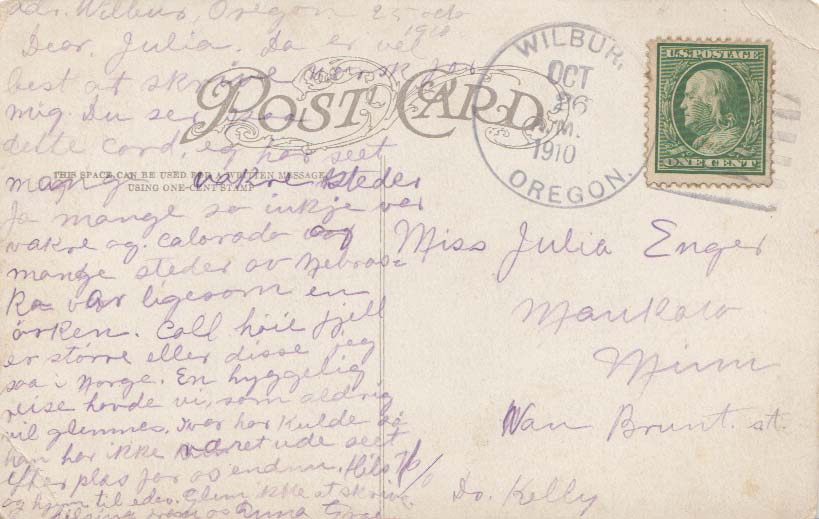 Wilbur, Oregon 25 octo
1910
Dear. Julia. Da er vel
best at skrive norsk for
mig. Du ser paa
dette card, eg har seet
mange vakre steder
Ja mange so inkje var
vakre og. Calorado og
mange steder av Nebras-
ka var ligesom en
örken. Call höie fjell
er större eller disse jeg
saa i Norge. En hyggelig
reise havde vi, som aldrig
vil glemmes. Ivar har Kulde so
han har ikke været ude seet
efter plas for os endnu. Hils
og hjem til edes. Glem ikke at skrive.
hilsing fra os Anna
POST CARD
THIS SPACE CAN BE USED FOR WRITTEN MESSAGE
USING ONE-CENT STAMP
WILBUR,
OCT
26
A.M.
1910
OREGON.
U.S. POSTAGE
ONE CENT
Miss Julia Enger
Mankato
Minn
Van Brunt. st.
℅ Dr. Kelly